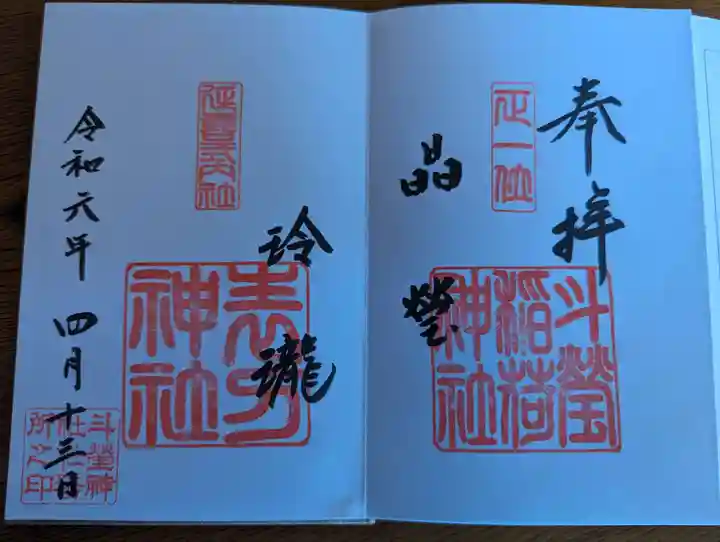 奉拝
正一位
晶
瑩
斗瑩
稲荷
神社
延喜式内社
玲
瓏
表刀
神社
令和六年 四月 十三日
斗瑩神
所之印